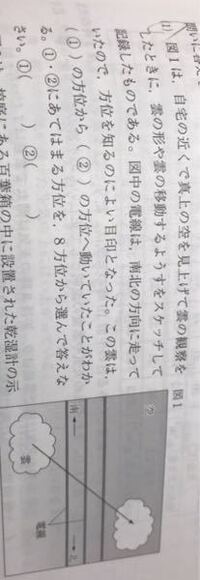 問いに答え
(1) 図1は、自宅の近くで真上の空を見上げて雲の観察を
したときに、雲の形や雲の移動するようすをスケッチして
記録したものである。図中の電線は、南北の方向に走って
いたので、方位を知るのによい目印となった。この雲は、
(①)の方位から(②)の方位へ動いていたことがわか
る。①・②にあてはまる方位を、8方位から選んで答えな
さい。①( ) ②( )
にある百葉箱の中に設置された乾湿計の示
図1
南
北
電線
雲